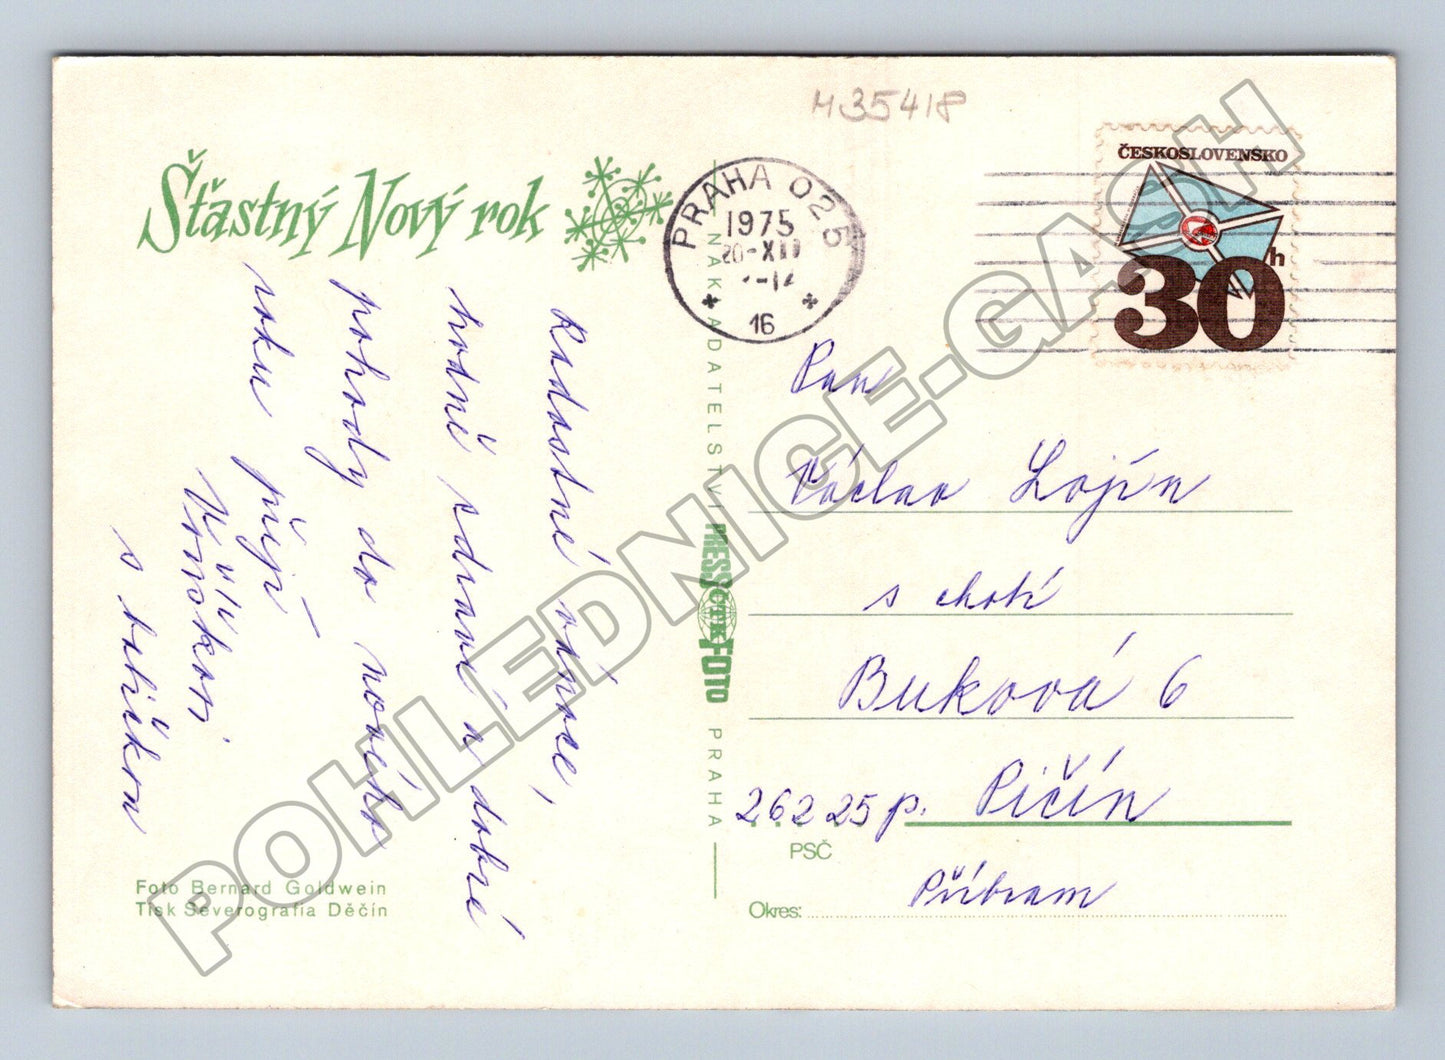 M35418
Šťastný Nový rok
PRAHA 025
1975
20-XII
-12
16
ČESKOSLOVENSKO
30h
Radostné vánoce,
hodně zdraví a dobré
pohody do nového
roku přejí
s babičkou
NAKLADATELSTVÍ PRESSFOTO PRAHA
ČTK
Pan
Václav Lojín
s chotí
Buková 6
262 25 p. Pičín
PSČ
Okres: Příbram
Foto Bernard Goldwein
Tisk Severografia Děčín
POHLEDNICE-GASH